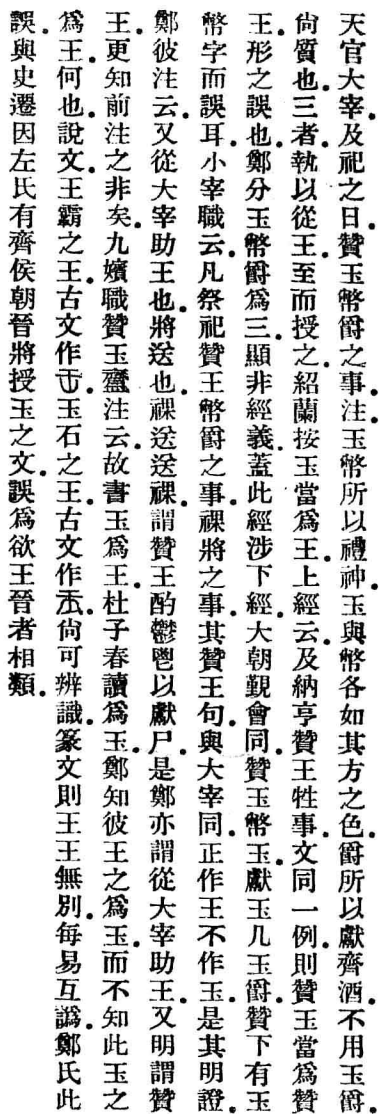 天官大宰及祀之日。贊玉幣爵之事。注玉幣所以禮神。玉與幣各如其方之色。爵所以獻齊酒。不用玉爵。
尙質也。三者執以從王。至而授之。紹蘭按玉當爲王。上經云。及納亨贊王牲事。文同一例。則贊玉當爲贊
王。形之誤也。鄭分玉幣爵爲三。顯非經義。蓋此經涉下經。大朝覲會同。贊玉幣。玉獻玉几玉爵。贊下有玉
幣字而誤耳。小宰職云。凡祭祀贊王幣爵之事。祼將之事。其贊王句。與大宰同。正作王不作玉。是其明證。
鄭彼注云。又從大宰助王也。將送也。祼送送祼。謂贊王酌鬱鬯以獻尸。是鄭亦謂從大宰助王。又明謂贊
王。更知前注之非矣。九嬪職贊玉齍。注云。故書玉爲王。杜子春讀爲玉。鄭知彼王之爲玉。而不知此玉之
爲王。何也。說文王霸之王。古文作。玉石之王。古文作。尙可辨識。篆文則王王無別。每易互譌。鄭氏此
誤。與史遷因左氏有齊侯朝晉將授玉之文。誤爲欲王晉者相類。